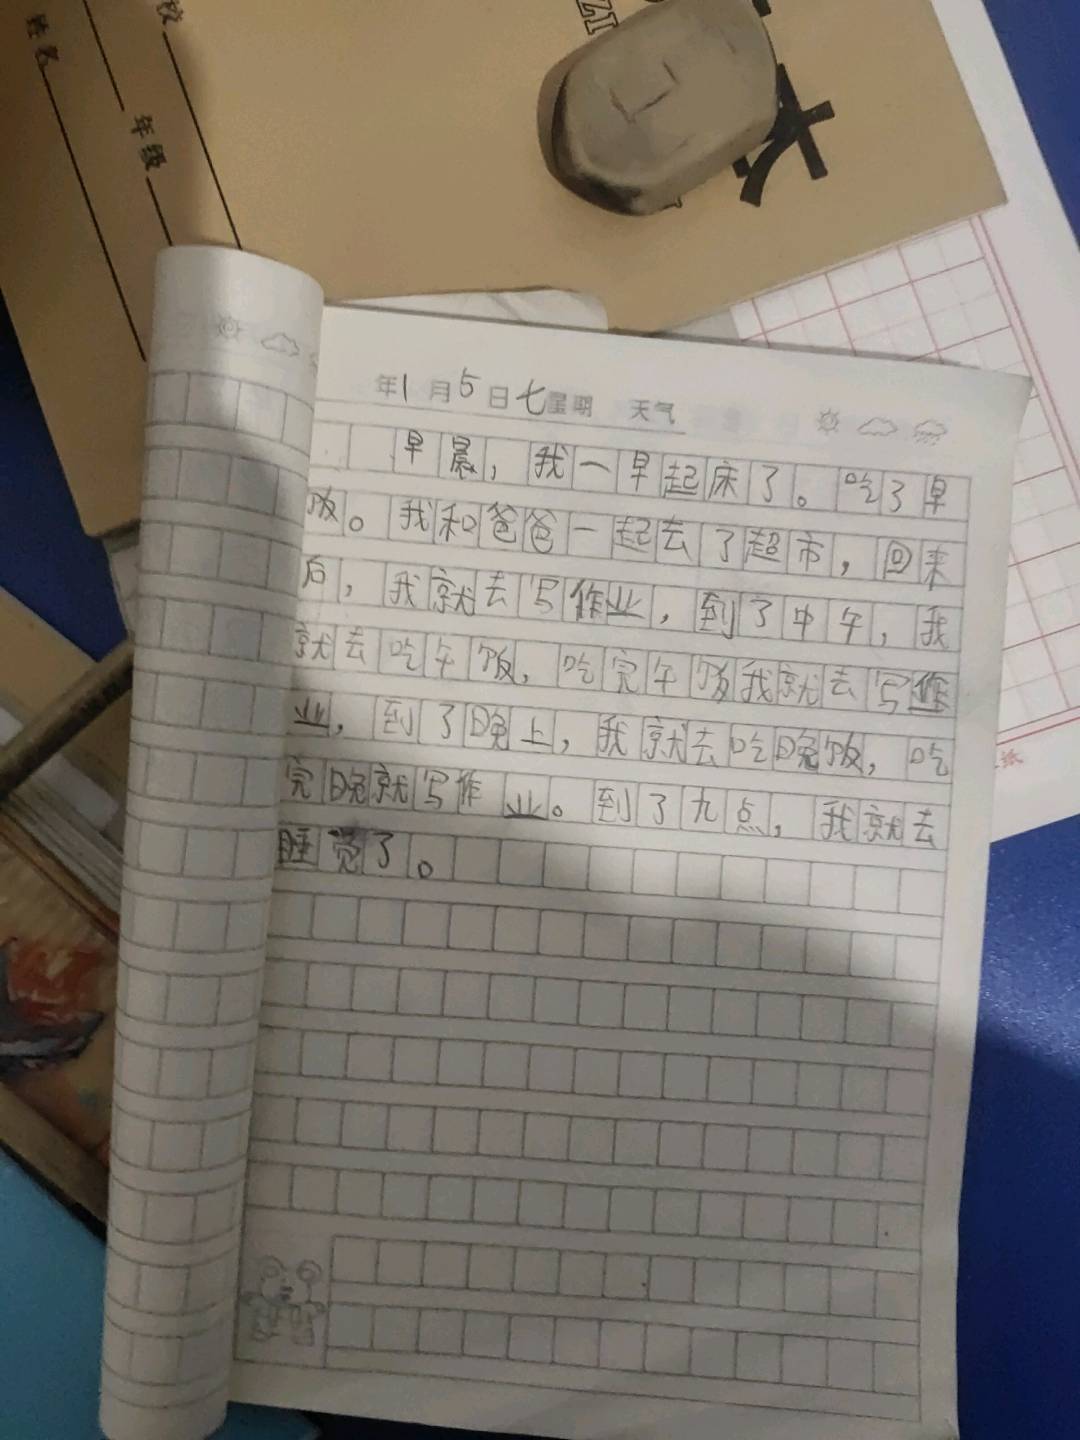 姓名
校
年级
本
年1月5日七星期 天气
早晨，我一早起床了。吃了早
饭。我和爸爸一起去了超市，回来
后，我就去写作业，到了中午，我
就去吃午饭，吃完午饭我就去写作
业，到了晚上，我就去吃晚饭，吃
完晚就写作业。到了九点，我就去
睡觉了。
纸